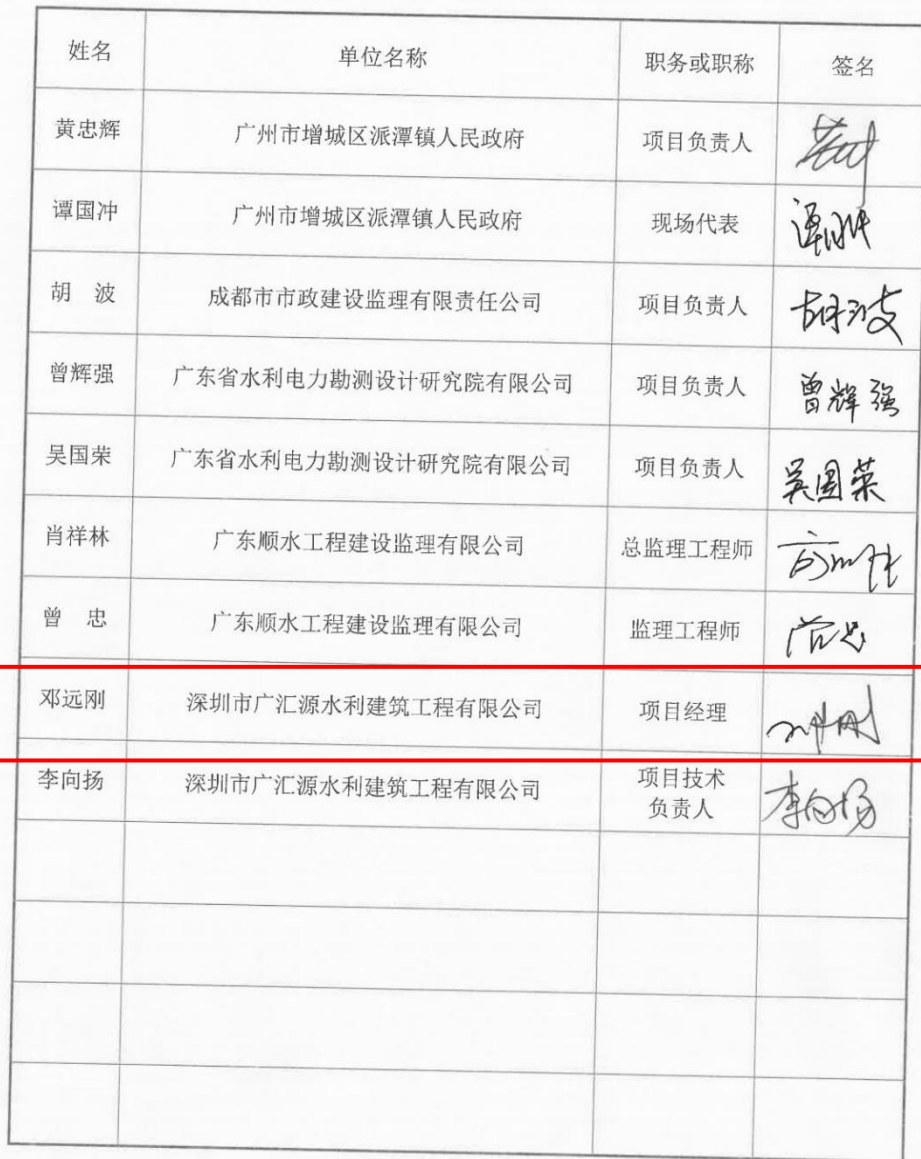 姓名 单位名称 职务或职称 签名
黄忠辉 广州市增城区派潭镇人民政府 项目负责人
谭国冲 广州市增城区派潭镇人民政府 现场代表
胡 波 成都市市政建设监理有限责任公司 项目负责人 胡波
曾辉强 广东省水利电力勘测设计研究院有限公司 项目负责人 曾辉强
吴国荣 广东省水利电力勘测设计研究院有限公司 项目负责人 吴国荣
肖祥林 广东顺水工程建设监理有限公司 总监理工程师
曾 忠 广东顺水工程建设监理有限公司 监理工程师 曾忠
邓远刚 深圳市广汇源水利建筑工程有限公司 项目经理
李向扬 深圳市广汇源水利建筑工程有限公司 项目技术 李向扬
负责人